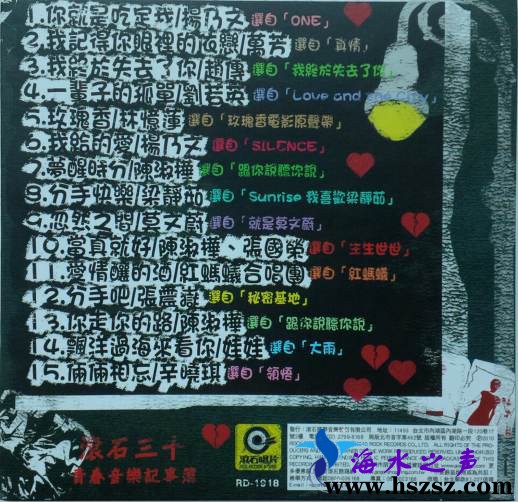 1.你就是吃定我/楊乃文 選自「ONE」
2.我記得你眼裡的依戀/萬芳 選自「真情」
3.我終於失去了你/趙傳 選自「我終於失去了你」
4.一輩子的孤單/劉若英 選自「Love and the City」
5.玫瑰香/林憶蓮 選自「玫瑰香電影原聲帶」
6.我給的愛/楊乃文 選自「SILENCE」
7.夢醒時分/陳淑樺 選自「跟你說聽你說」
8.分手快樂/梁靜茹 選自「Sunrise 我喜歡梁靜茹」
9.忽然之間/莫文蔚 選自「就是莫文蔚」
10.當真就好/陳淑樺、張國榮 選自「生生世世」
11.愛情釀的酒/紅螞蟻合唱團 選自「紅螞蟻」
12.分手吧/張震嶽 選自「秘密基地」
13.你走你的路/陳淑樺 選自「跟你說聽你說」
14.飄洋過海來看你/娃娃 選自「大雨」
15.倆倆相忘/辛曉琪 選自「領悟」
滾石三千
青春音樂記事簿
滾石唱片
ROCK RECORDS
RD-1918
海水之声
www.hszsz.com